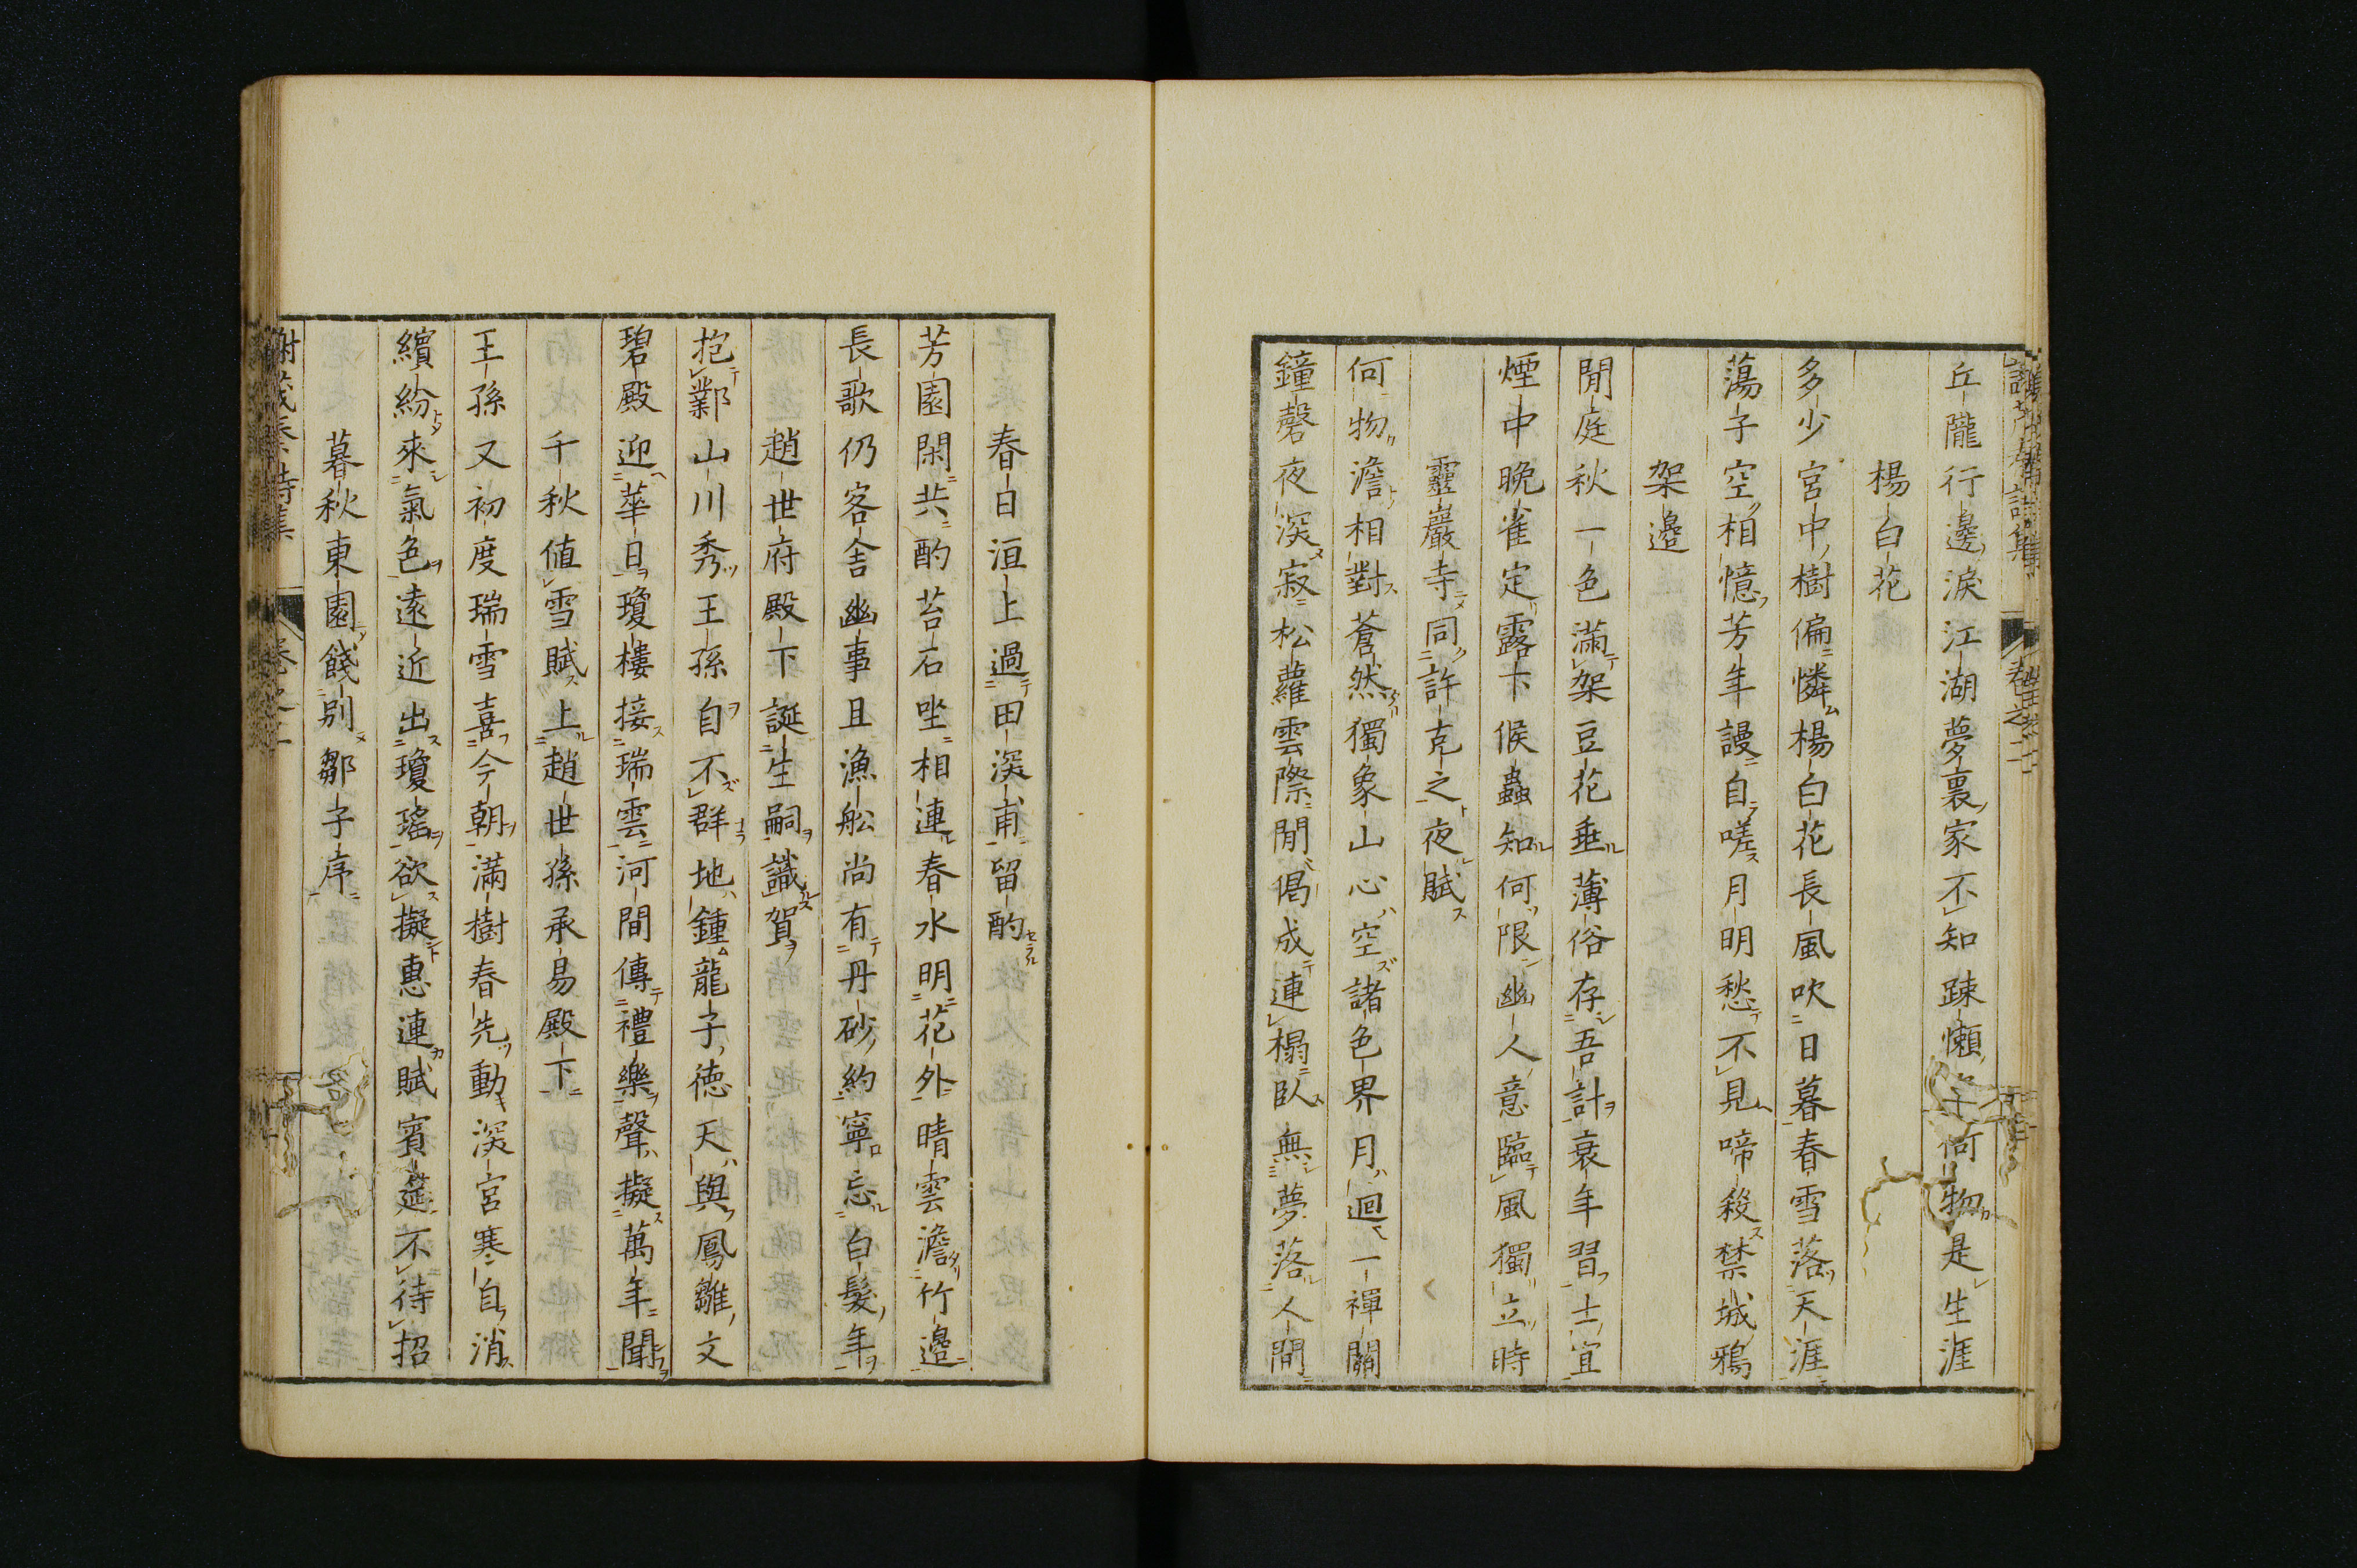 丘隴行邊淚江湖夢裏家不知踈懶何物是生涯
楊白花
多少宮中樹偏憐楊白花長風吹日暮春雪落天涯
蕩子空相憶芳年謾自嗟月明愁不見啼殺禁城鴉
架邊
閒庭秋一色滿架豆花垂薄俗存吾計衰年習士宜
煙中晚雀定露下候蟲知何限幽人意臨風獨立時
靈巖寺同許克之夜賦
何物澹相對蒼然獨象山心空諸色界月迴一禪關
鐘磬夜深寂松蘿雲際閒偈成連榻臥無夢落人間
春日洹上過田深甫留酌
芳園閑共酌苔石坐相連春水明花外晴雲澹竹邊
長歌仍客舍幽事且漁船尚有丹砂約寧忘白髮年
趙世府殿下誕生嗣識賀
抱鄴山川秀王孫自不群地鍾龍子德天與鳳雛文
碧殿迎華日瓊樓接瑞雲河間傳禮樂聲擬萬年聞
千秋値雪賦上趙世孫承易殿下
王孫又初度瑞雪喜今朝滿樹春先動深宮寒自消
繽紛來氣色遠近出瓊瑤欲擬惠連賦賓筵不待招
暮秋東園餞別鄒子序